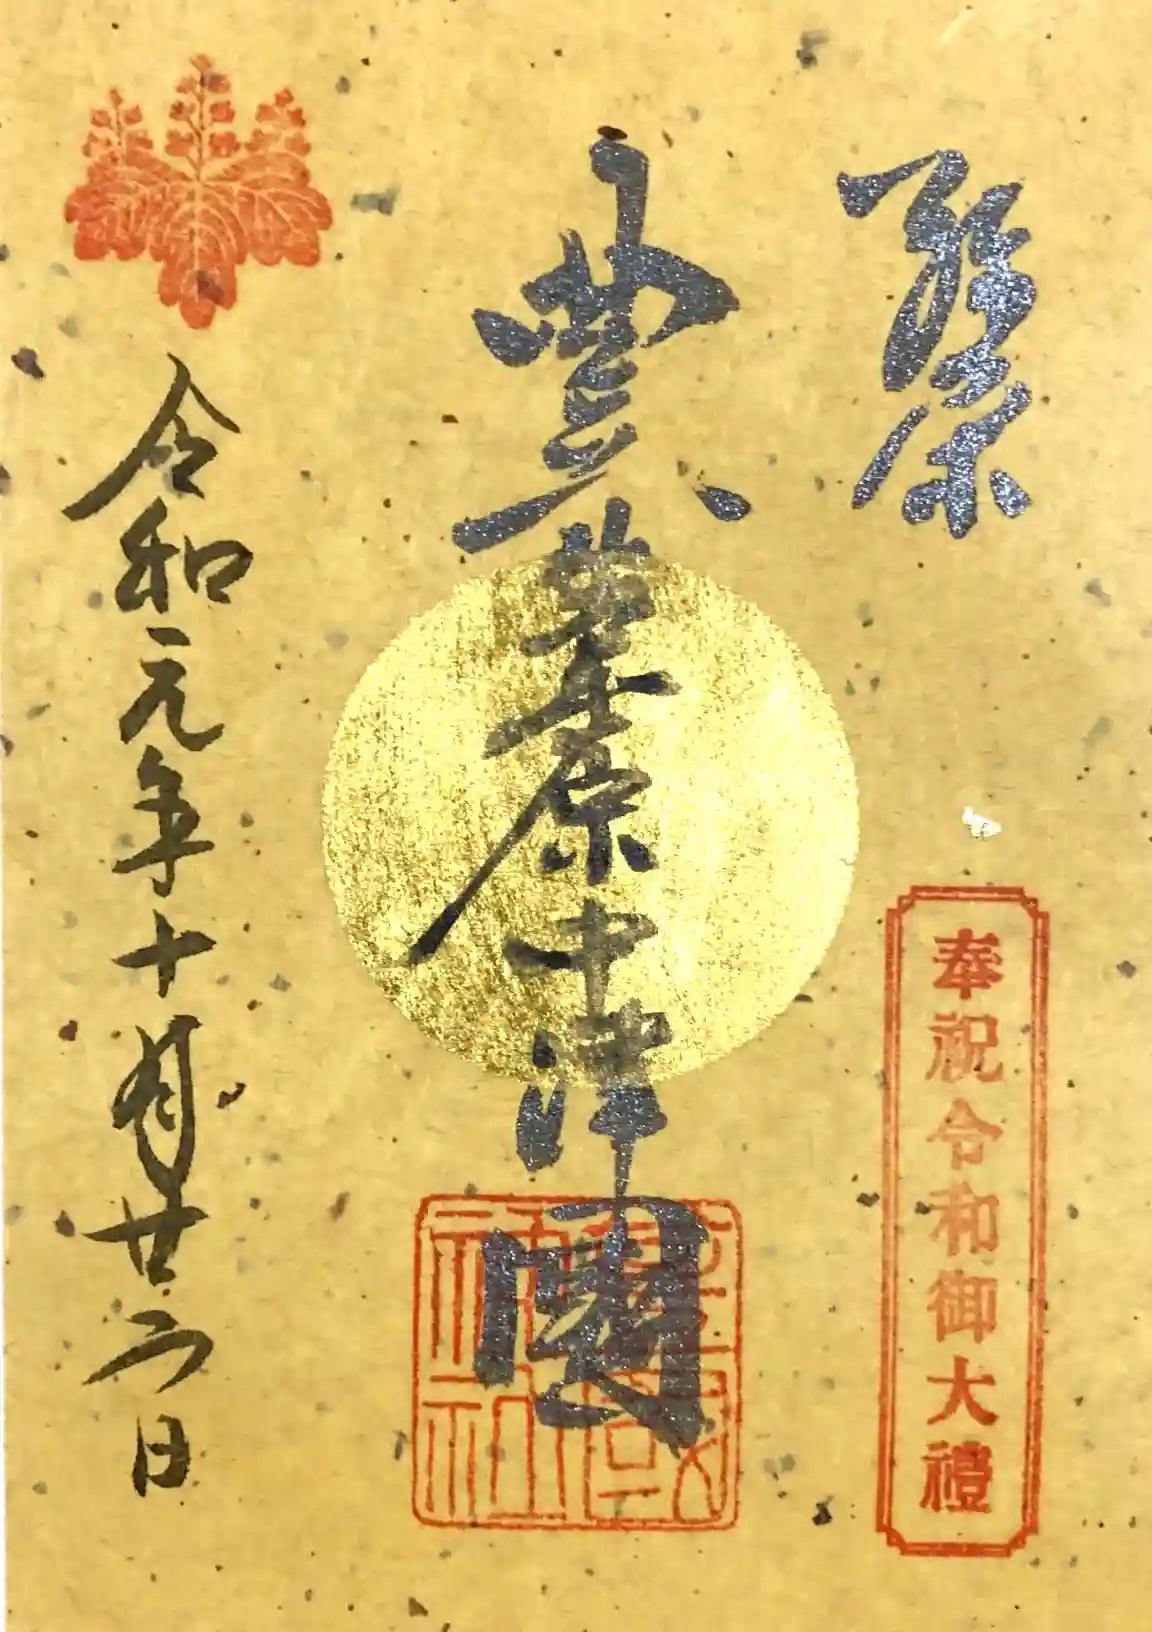 奉祝令和御大禮
豊葦原中津國
令和元年十月廿二日